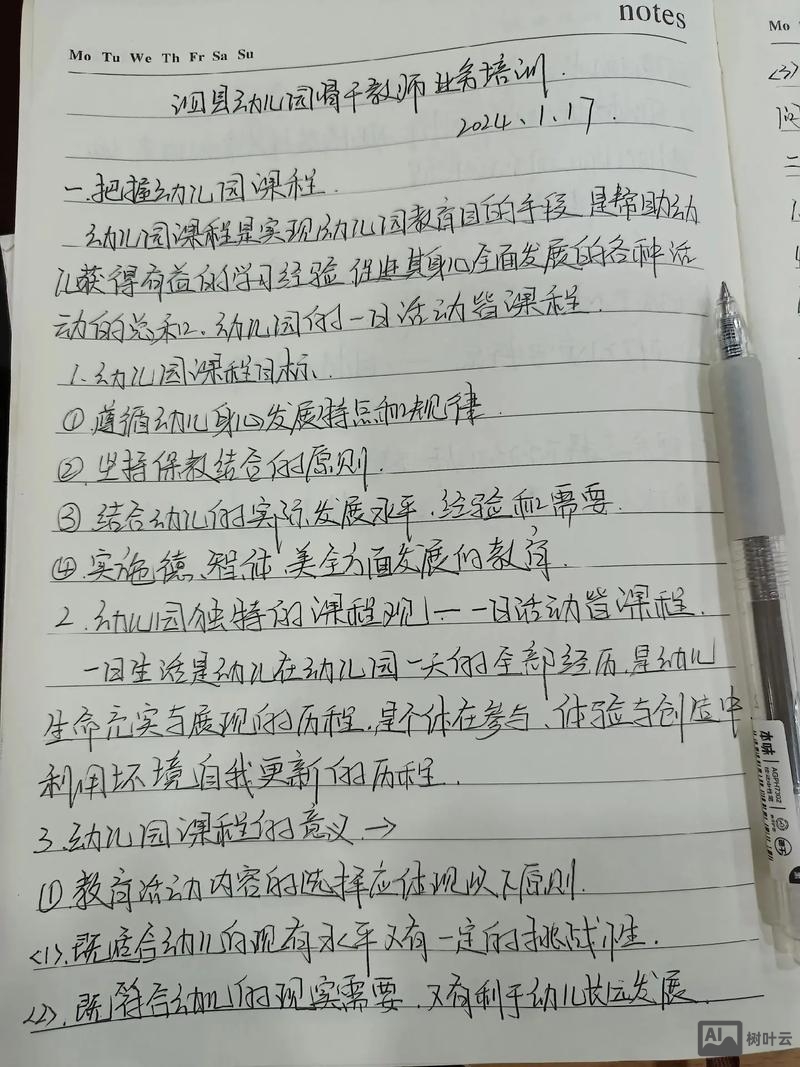 notes
Mo Tu We Th Fr Sa Su
泗县幼儿园骨干教师业务培训.
2024.1.17.
一.把握幼儿园课程.
幼儿园课程是实现幼儿园教育目的手段,是帮助幼
儿获得有益的学习经验,促进其身心全面发展的各种活
动的总和.幼儿园的一日活动皆课程.
1.幼儿园课程目标.
①遵循幼儿身心发展特点和规律.
②.坚持保教结合的原则.
③结合幼儿的实际发展水平.经验和需要.
④.实施德、智体、美全方面发展的教育.
2.幼儿园独特的课程观——一日活动皆课程.
一日生活是幼儿在幼儿园一天的全部经历,是幼儿
生命充实与展现的历程.是个体在参与、体验与创造中
利用环境自我更新的历程.
3.幼儿园课程的意义.→
①教育活动内容的选择应体现以下原则.
<1>.既适合幼儿的现有水平又有一定的挑战性.
<2>.既符合幼儿的现实需要.又有利于幼儿长远发展.
Mo
<3>
问
二
本味
AGPH7302
AI 树叶云